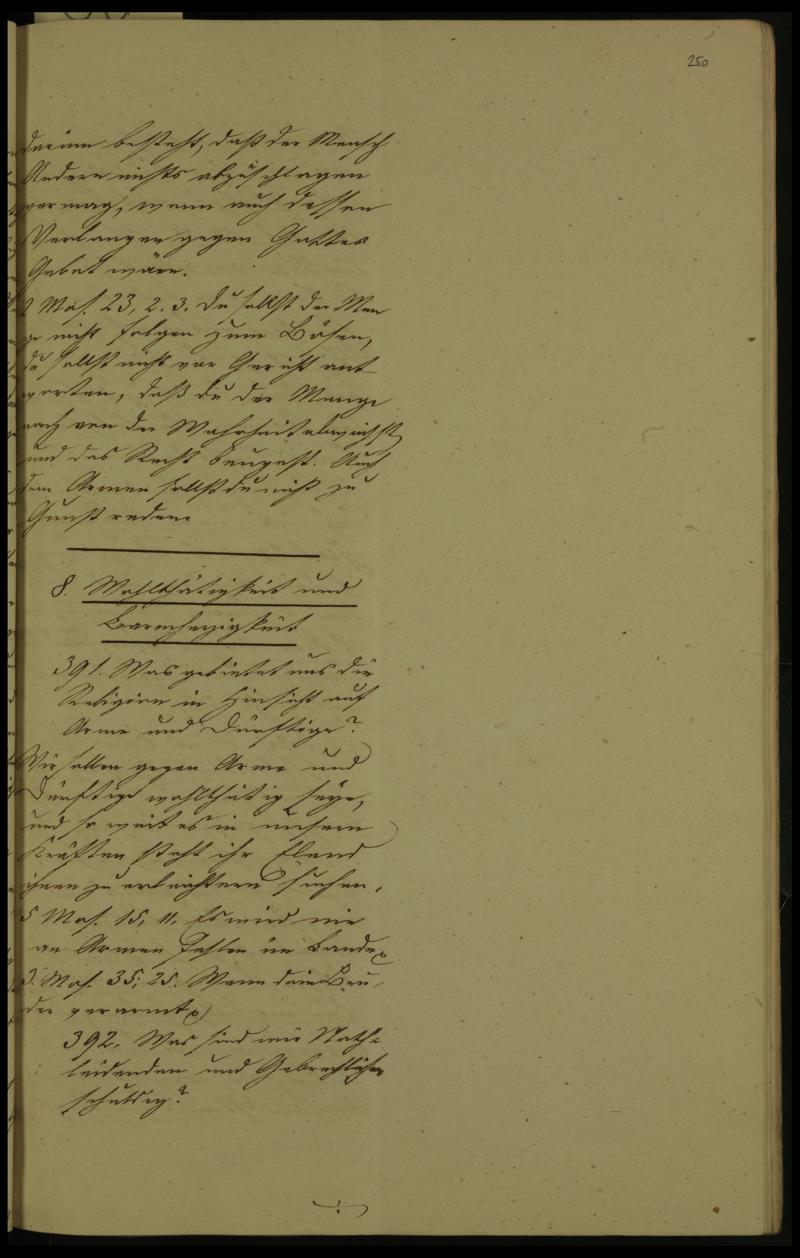 250
darinn besteht, daß der Mensch
Andern nichts abzuschlagen
vermag, wenn auch dessen
Verlangen gegen Gottes
Gebot wäre.
2 Mos. 23, 2. 3. Du sollst der Men
ge nicht folgen zum Bösen,
du sollst nicht vor Gericht ant
worten, daß du der Menge
nach von der Wahrheit abweichst,
und das Recht beugest. Auch
dem Armen sollst du nicht zu
Gunst reden.
8. Wohlthätigkeit und
Barmherzigkeit
391. Was gebietet uns die
Religion in Hinsicht auf
Arme und Dürftige?
Wir sollen gegen Arme und
Dürftige wohlthätig seyn,
und so weit es in unsern
Kräften steht ihr Elend
ihnen zu erleichtern suchen.
5 Mos. 15, 11. Es wird nie
an Armen fehlen im Lande
3. Mos. 35; 25. Wenn dein Bru
der verarmt
392. Was sind wir Noth-
leidenden und Gebrechlichen
schuldig?